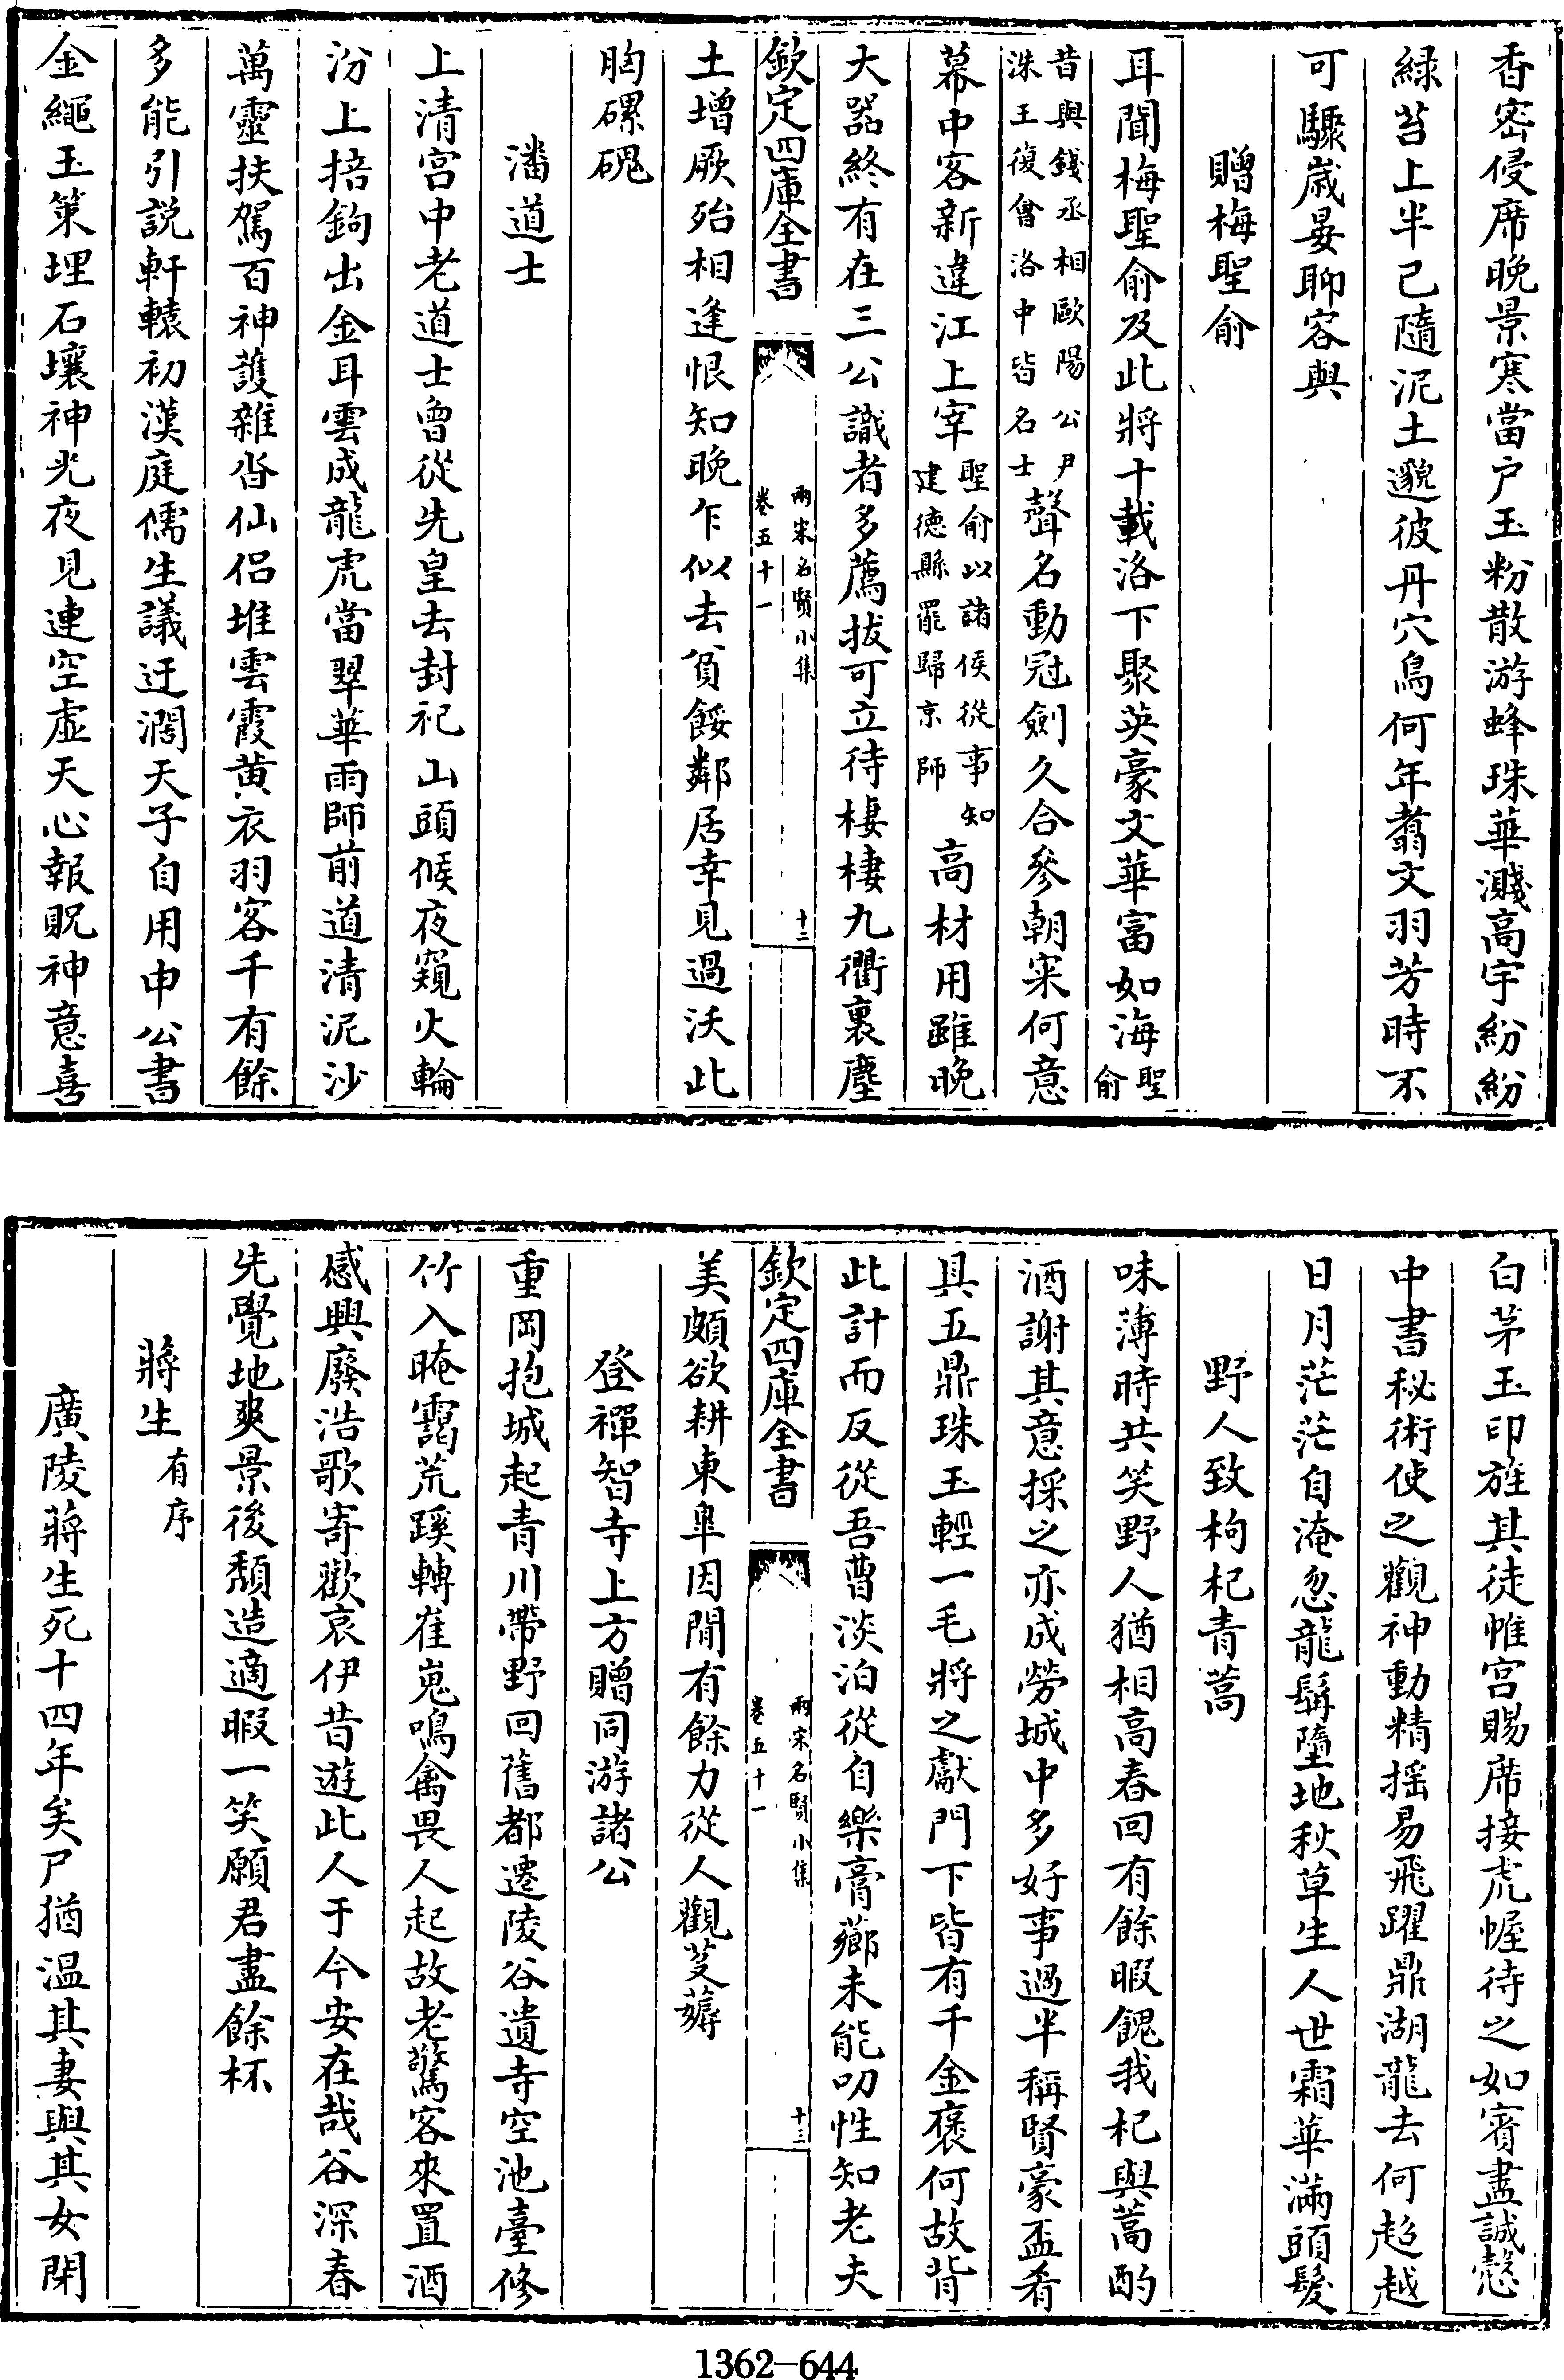 香密侵席晚景寒當户玉粉散游蜂珠華濺高宇紛紛
緑苔上半已隨泥土邈彼丹穴鳥何年翥文羽芳時不
可驟嵗晏聊容與
贈梅聖俞
耳聞梅聖俞及此將十載洛下聚英豪文華富如海聖俞
昔與錢丞相歐陽公尹洙王復會洛中皆名士聲名動冠劍久合參朝寀何意
幕中客新違江上宰聖俞以諸侯從事知建徳縣罷歸京師高材用雖晚
大器終有在三公識者多薦拔可立待棲棲九衢裏塵
欽定四庫全書
兩宋名賢小集
卷五十一
十二
土增厥殆相逢恨知晚乍似去貧餒鄰居幸見過沃此
胸磥磈
潘道士
上清宫中老道士曾從先皇去封祀山頭候夜窺火輪
汾上掊鉤出金耳雲成龍虎當翠華雨師前道清泥沙
萬靈扶駕百神護雜沓仙侣堆雲霞黄衣羽客千有餘
多能引説軒轅初漢庭儒生議迂濶天子自用申公書
金繩玉策埋石壤神光夜見連空虚天心報貺神意喜
白茅玉印旌其徒帷宫賜席接虎幄待之如賓盡誠慤
中書秘術使之觀神動精揺易飛躍鼎湖龍去何超越
日月茫茫自淹忽龍髯墮地秋草生人世霜華滿頭髮
野人致枸杞青蒿
味薄時共笑野人猶相高春回有餘暇餽我杞與蒿酌
酒謝其意採之亦成勞城中多好事過半稱賢豪盃肴
具五鼎珠玉輕一毛將之獻門下皆有千金褒何故背
此計而反從吾曹淡泊從自樂膏薌未能叨性知老夫
欽定四庫全書
兩宋名賢小集
卷五十一
十三
美頗欲耕東臯因閒有餘力從人觀芟薅
登禪智寺上方贈同游諸公
重岡抱城起青川帶野回舊都遷陵谷遺寺空池臺修
竹入晻靄荒蹊轉崔嵬鳴禽畏人起故老驚客來置酒
感興廢浩歌寄歡哀伊昔遊此人于今安在哉谷深春
先覺地爽景後頽造適暇一笑願君盡餘杯
蔣生有序
廣陵蔣生死十四年矣尸猶温其妻與其女閉
1362-644